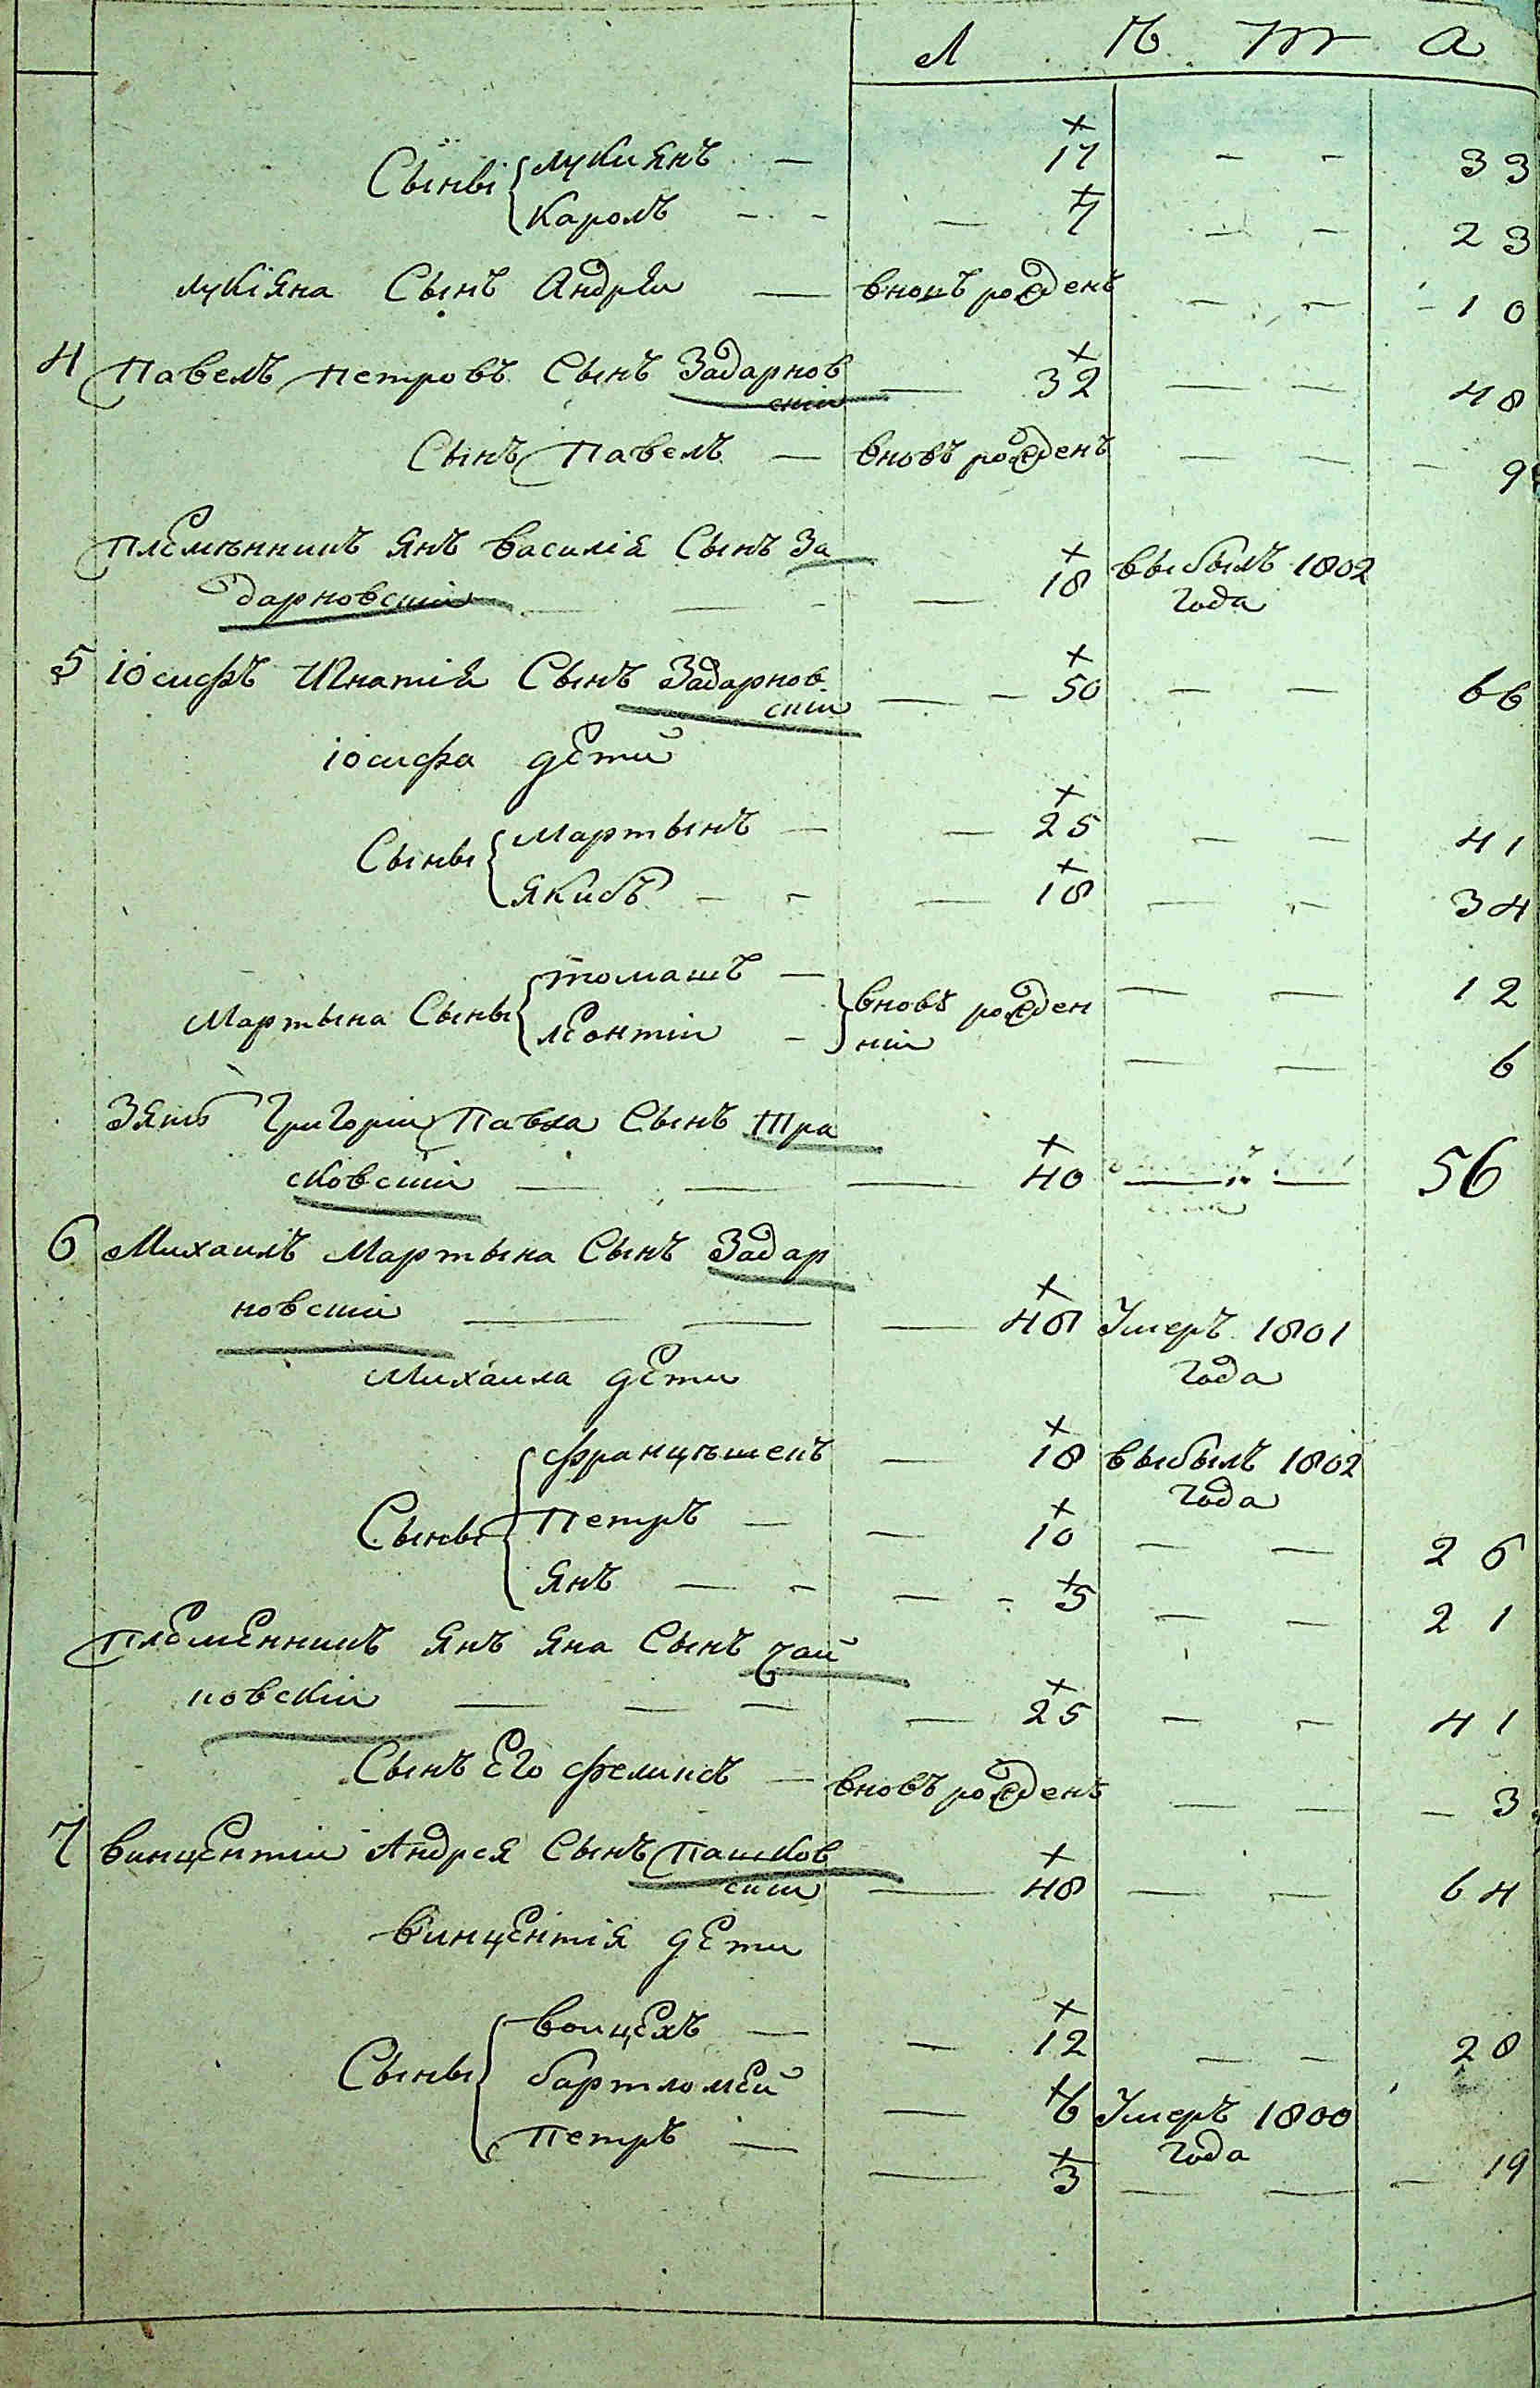 Л ѣ т а
Сынвi Лукиянъ — 17 — — 33
Каролъ — — — 7 — — 23
Лукіяна Сынъ Андрѣи — вновъ рожденъ — — — 10
4 Павелъ Петровъ Сынъ Задарнов
скiи — 32 — — 48
Сынъ Павелъ — вновъ рожденъ — — — 9
Племѣнникъ Янъ Василія Сынъ За
дарновскiи — — — 18 выбылъ 1802
года
5 Іосифъ Игнатія Сынъ Задарнов
скiи — — 50 — — 66
Іосифа дети
Сынвi Мартынъ — — 25 — — 41
Якубъ — — — 18 — — 34
Мартына Сынвi Томашъ — вновъ рожден — — 12
Леонтiи — нiи — — 6
Зять Григорiи Павла Сынъ Тра
сковскiи — — — 40 — — 56
6 Михаилъ Мартына Сынъ Задар
новскiи — — — 48 Умеръ 1801
года
Михаила дети
Сынвi Францѣшекъ — 18 выбылъ 1802
года
Петръ — — 10 — — 26
Янъ — — — — 5 — — 21
Племенникъ Янъ Яна Сынъ Чай
ковскiи — — — — 25 — — 41
Сынъ Его Феликсъ — вновъ рожденъ — — — 3
7 Винцентiи Андрея Сынъ Пашков
скiи — 48 — — 64
Винцентія дети
Сынвi Воицехъ — — 12 — — 28
Бартломей — 6 Умеръ 1800
года
Петръ — — 3 — — — 19